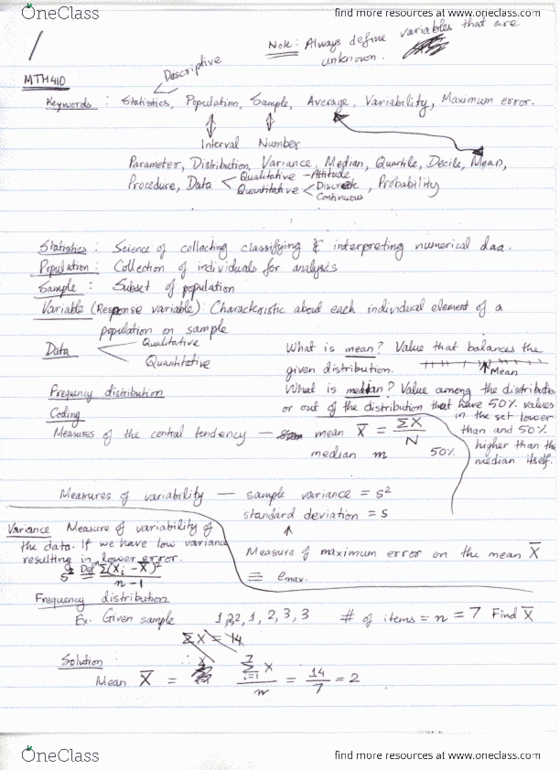 OneClass
find more resources at oneclass.com
Note: Always define variables that are
unknown.
1
MTH410
Descriptive
Keywords: Statistics, Population, Sample, Average, Variability, Maximum error.
Interval Number
Parameter, Distribution, Variance, Median, Quartile, Decile, Mean,
Procedure, Data < Qualitative - Attitude
Quantitative < Discrete, Probability
Continuous
Statistics: Science of collecting classifying & interpreting numerical daa.
Population: Collection of individuals for analysis
Sample: Subset of population
Variable (Response variable): Characteristic about each individual element of a
population on sample
Data Qualitative
Quantitative
What is mean? Value that balances the
given distribution.
Mean
Frequency distribution
What is median? Value among the distributio
or out of the distribution that have 50% values
in the set lower
than and 50%
higher than the
median itself.
Coding
Measures of the central tendency — mean X̄ = ΣX/N
median m 50%
Measures of variability — sample variance = s²
standard deviation = s
Variance Measure of variability of
the data. If we have low variance
resulting in lower error.
s² Def Σ(Xi - X̄)²/n-1
Measure of maximum error on the mean X̄
≡ emax.
Frequency distribution
Ex. Given sample 1,2,2,1,2,3,3 # of items = n = 7 Find X̄
ΣX = 14
Solution:
Mean X̄ = Σ⁷ᵢ₌₁ X/n = 14/7 = 2
OneClass
find more resources at oneclass.com